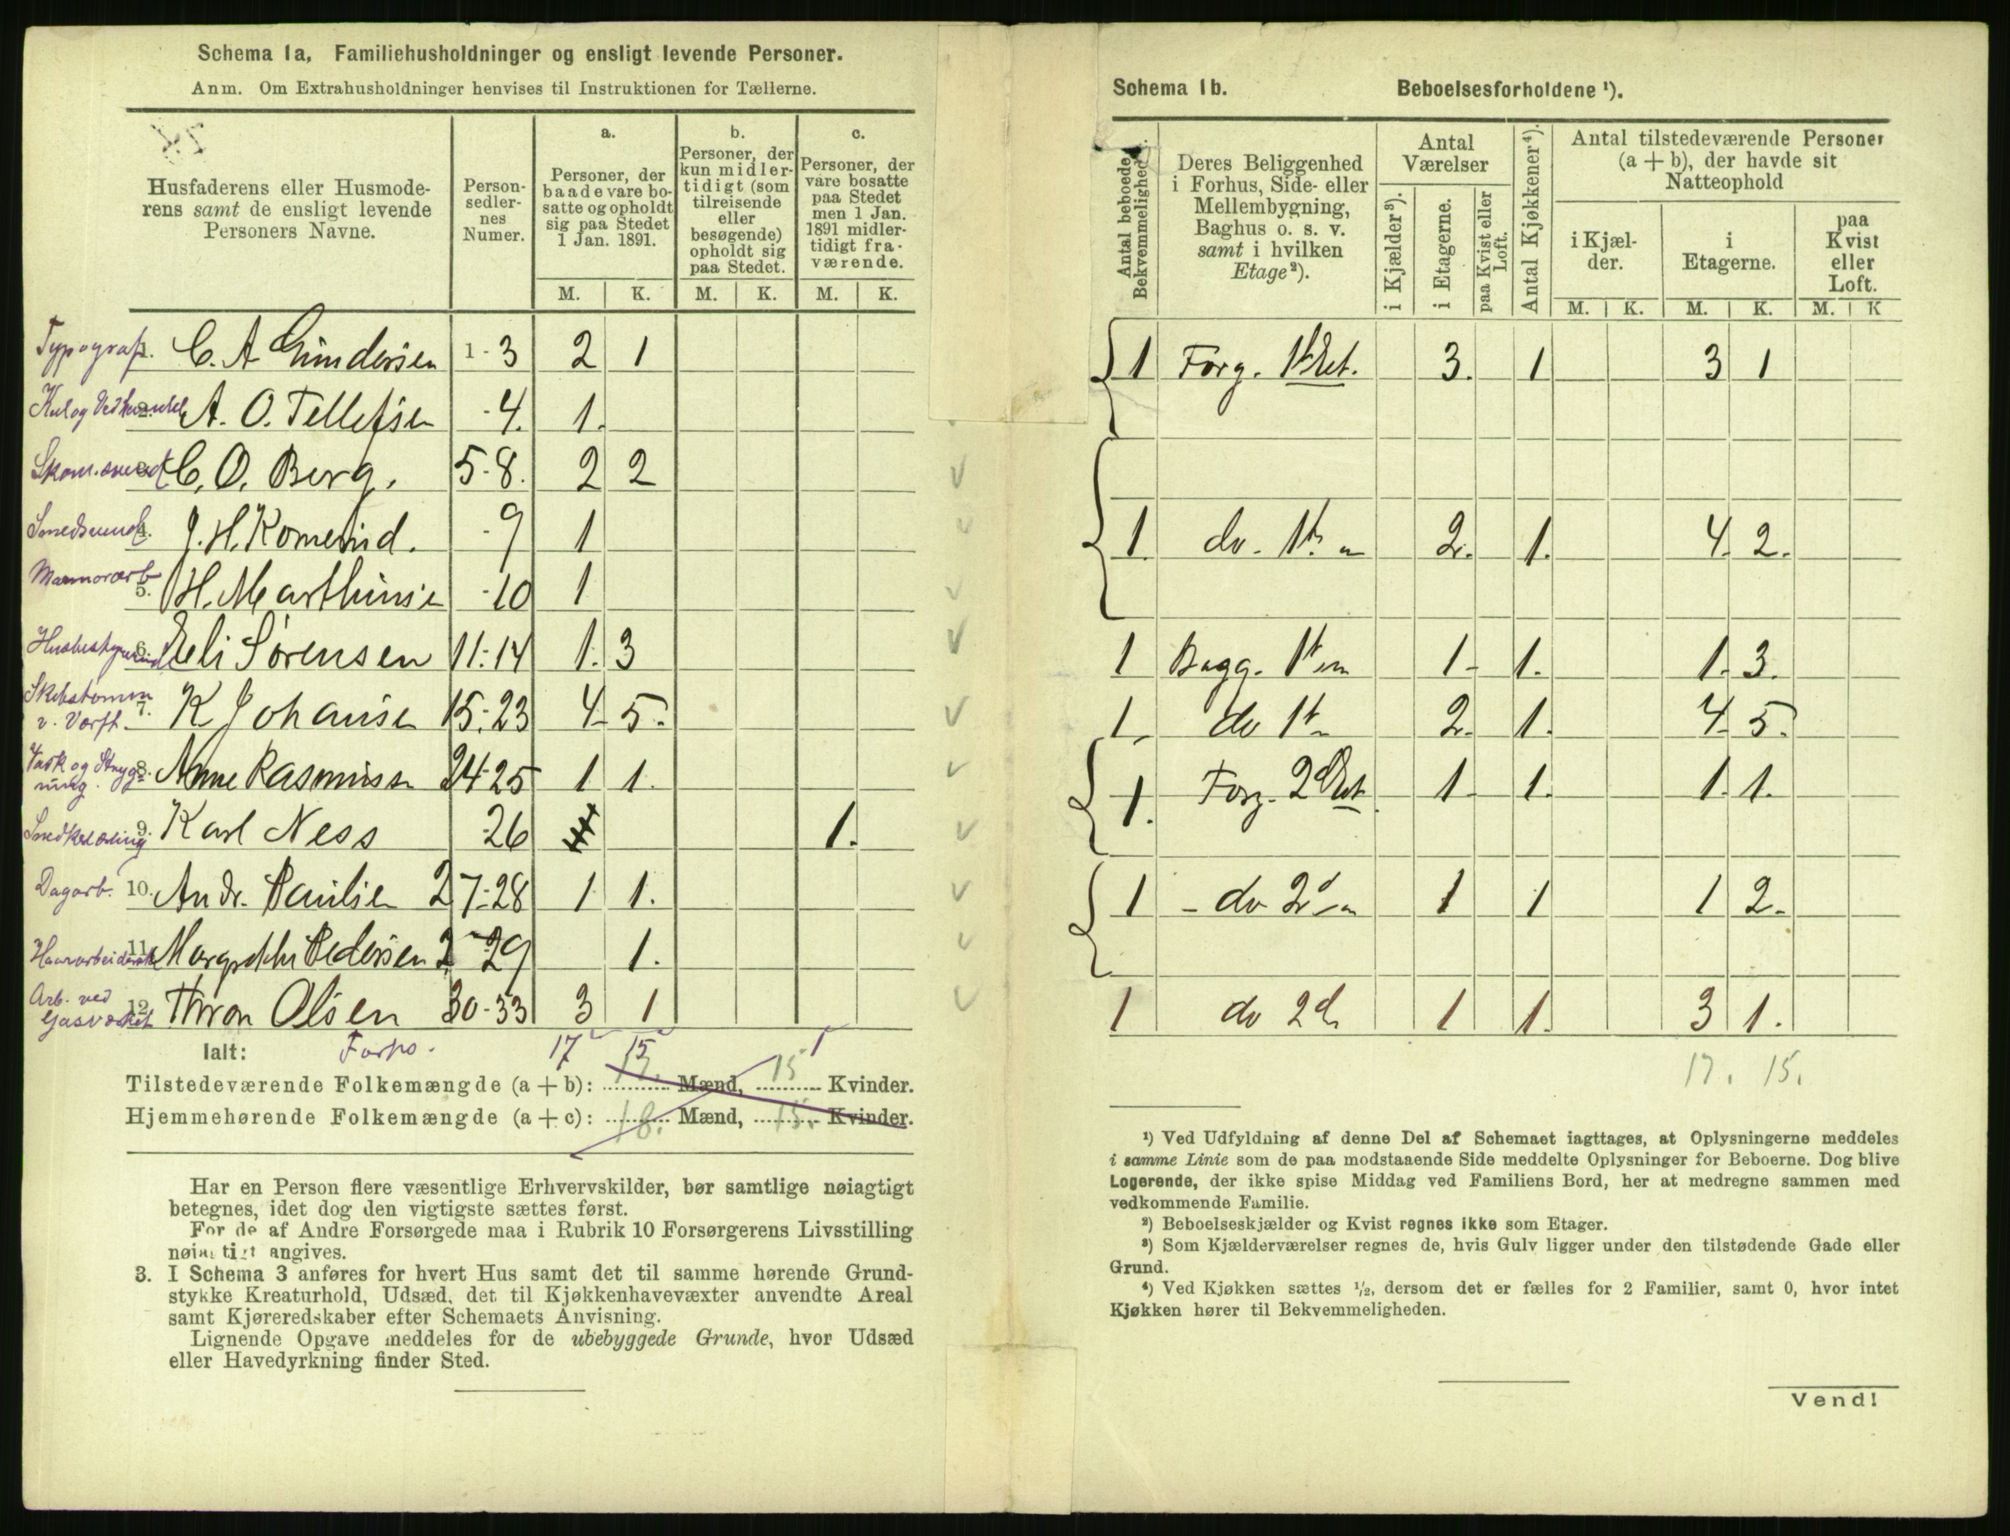 Schema 1a, Familiehusholdninger og ensligt levende Personer.
Anm. Om Extrahusholdninger henvises til Instruktionen for Tællerne.
Husfaderens eller Husmoderens samt de ensligt levende Personers Navne.
Personsedlernes Numer.
a. Personer, der baade vare bosatte og opholdt sig paa Stedet 1 Jan. 1891.
b. Personer, der kun midlertidigt (som tilreisende eller besøgende) opholdt sig paa Stedet.
c. Personer, der vare bosatte paa Stedet men 1 Jan. 1891 midlertidigt fraværende.
M. K. M. K. M. K.
Typograf. 1. C. A Gundersen 1-3 2 1
Kul og Vedhandel 2. A. O. Tellefsen -4. 1.
3. C. O. Berg. 5-8. 2 2
Smedsvend 4. J. H. -9 1
Marmorarb 5. H. Marthinse -10 1
6. Eli Sørensen 11-14 1. 3
v. Værft. 7. K Johanse 15-23 4- 5-
Vask og Strygning. 8. Anne Rasmuss 24-25 1 1.
9. Karl Ness -26 1.
Dagarb. 10. Andr. Paulse 27-28 1 1.
11. Pedersen 2 -29 1.
Arb. ved Gasværket 12. Thron Olsen 30-33 3 1
Ialt: 17 15 1
Tilstedeværende Folkemængde (a + b): 17. Mænd, 15 Kvinder.
Hjemmehørende Folkemængde (a + c): 18. Mænd, 15. Kvinder.
Har en Person flere væsentlige Erhvervskilder, bør samtlige nøiagtigt
betegnes, idet dog den vigtigste sættes først.
For de af Andre Forsørgede maa i Rubrik 10 Forsørgerens Livsstilling
nøiagtigt angives.
3. I Schema 3 anføres for hvert Hus samt det til samme hørende Grund-
stykke Kreaturhold, Udsæd, det til Kjøkkenhavevæxter anvendte Areal
samt Kjøreredskaber efter Schemaets Anvisning.
Lignende Opgave meddeles for de ubebyggede Grunde, hvor Udsæd
eller Havedyrkning finder Sted.
Schema 1b. Beboelsesforholdene ¹).
Antal beboede Bekvemmeligheder.
Deres Beliggenhed i Forhus, Side- eller Mellembygning, Baghus o. s. v. samt i hvilken Etage ²).
Antal Værelser
i Kjælder ³).
i Etagerne.
paa Kvist eller Loft.
Antal Kjøkkener ⁴).
Antal tilstedeværende Personer (a + b), der havde sit Natteophold
i Kjælder.
i Etagerne.
paa Kvist eller Loft.
M. K. M. K. M. K
1 Forg. 1st Et. 3. 1 3 1
1. do. 1st " 2. 1. 4. 2.
1 Bagg. 1st " 1- 1. 1. 3.
1. do 1st " 2. 1. 4. 5.
1. Forg. 2d Et. 1. 1. 1. 1.
1 - do 2d " 1 1 1 2.
1 do 2d. 1 1. 3 1.
17. 15.
¹) Ved Udfyldning af denne Del af Schemaet iagttages, at Oplysningerne meddeles
i samme Linie som de paa modstaaende Side meddelte Oplysninger for Beboerne. Dog blive
Logerende, der ikke spise Middag ved Familiens Bord, her at medregne sammen med
vedkommende Familie.
²) Beboelseskjælder og Kvist regnes ikke som Etager.
³) Som Kjælderværelser regnes de, hvis Gulv ligger under den tilstødende Gade eller
Grund.
⁴) Ved Kjøkken sættes ½, dersom det er fælles for 2 Familier, samt 0, hvor intet
Kjøkken hører til Bekvemmeligheden.
Vend!